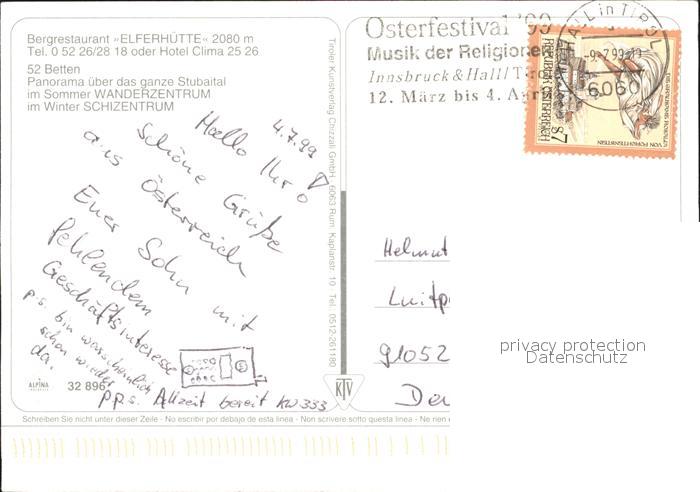 Bergrestaurant »ELFERHÜTTE« 2080 m
Tel. 0 52 26/28 18 oder Hotel Clima 25 26
52 Betten
Panorama über das ganze Stubaital
im Sommer WANDERZENTRUM
im Winter SCHIZENTRUM
4.7.99
Hallo Ihr
Schöne Grüße
aus Österreich
Euer Sohn mit
fehlendem
Geschäftsinteresse
p.s. bin warscheinlich
schon wieder
da.
p.p.s. Allzeit bereit KW333
ALPINA
32 896
Tiroler Kunstverlag Chizzali GmbH, 6063 Rum, Kaplanstr. 10 Tel. 0512-261180
KTV
Osterfestival '99
Musik der Religionen
Innsbruck & Hall/Tirol
12. März bis 4. April
HALL in TIROL
-9.-7.99
6060
REPUBLIK ÖSTERREICH
S 7
VON FORCHTENSTEIN
Helmut
Luitp
91052
Deu
privacy protection
Datenschutz
Schreiben Sie nicht unter dieser Zeile - No escribir por debajo de esta linea - Non scrivere sotto questa linea - Ne rien